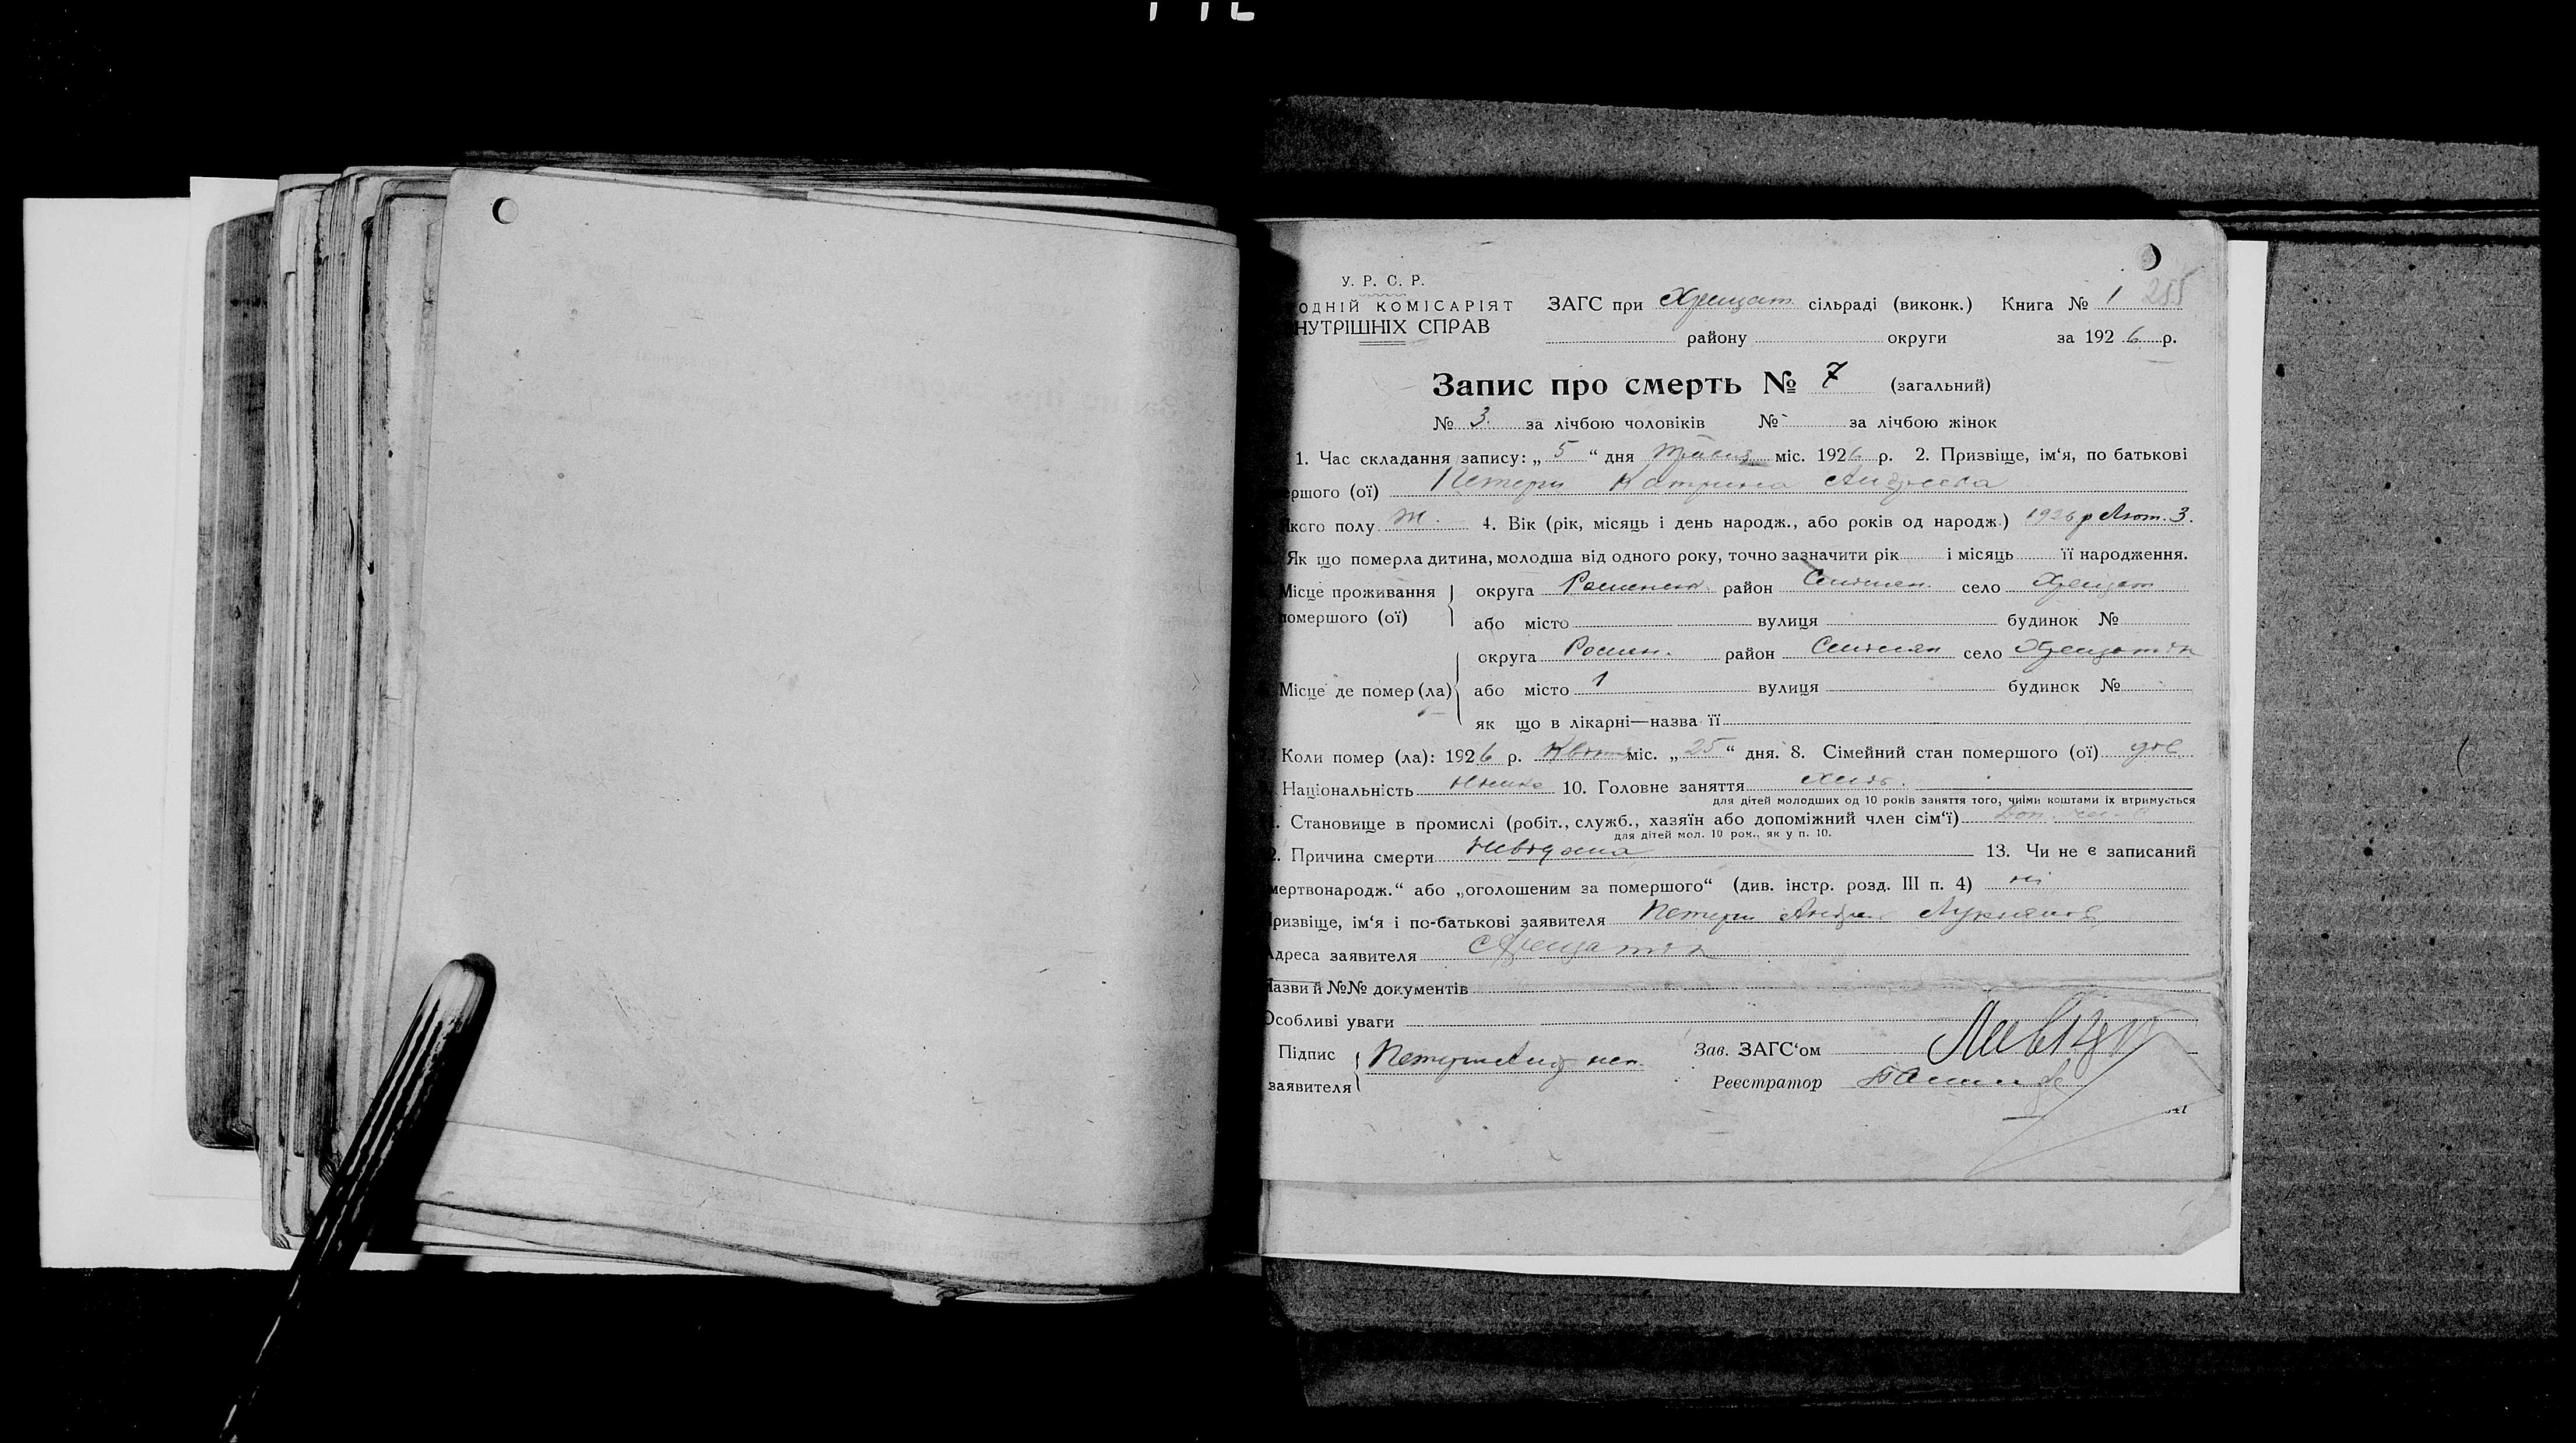 У. Р. С. Р.
ОДНІЙ КОМІСАРІЯТ ЗАГС при Хрещат. сільраді (виконк.) Книга № 1 255
НУТРІШНІХ СПРАВ
району округи за 1926 р.
Запис про смерть № 7 (загальний)
№ 3. за лічбою чоловіків № - за лічбою жінок
1. Час складання запису: „ 5 “ дня Травня міс. 1926 р. 2. Призвіще, ім‘я, по батькові
ршого (ої) Катрина Андреева
кого полу ж. 4. Вік (рік, місяць і день народж., або років од народж.) 1926 р Лют. 3.
Як що померла дитина, молодша від одного року, точно зазначити рік і місяць її народження.
Місце проживання округа Роменськ. район село Хрещат
помершого (ої) або місто вулиця будинок №
округа Ромен. район село Хрещатік
Місце де помер (ла) або місто 1 вулиця будинок №
як що в лікарні—назва її
Коли помер (ла): 1926 р. Квіт міс. „ 25 “ дня. 8. Сімейний стан помершого (ої) дів
Національність 10. Головне заняття хліб.
для дітей молодших од 10 років заняття того, чиїми коштами їх втримується
. Становище в промислі (робіт., служб., хазяїн або допоміжний член сім‘ї) Доп.
для дітей мол. 10 рок., як у п. 10.
2. Причина смерти Невідома 13. Чи не є записаний
мертвонародж.“ або „оголошеним за помершого“ (див. інстр. розд. III п. 4) ні
ризвіще, ім‘я і по-батькові заявителя Андрей
дреса заявителя с Хрещатік
Назви й №№ документів
Особливі уваги
Підпис Зав. ЗАГС‘ом
заявителя Реєстратор